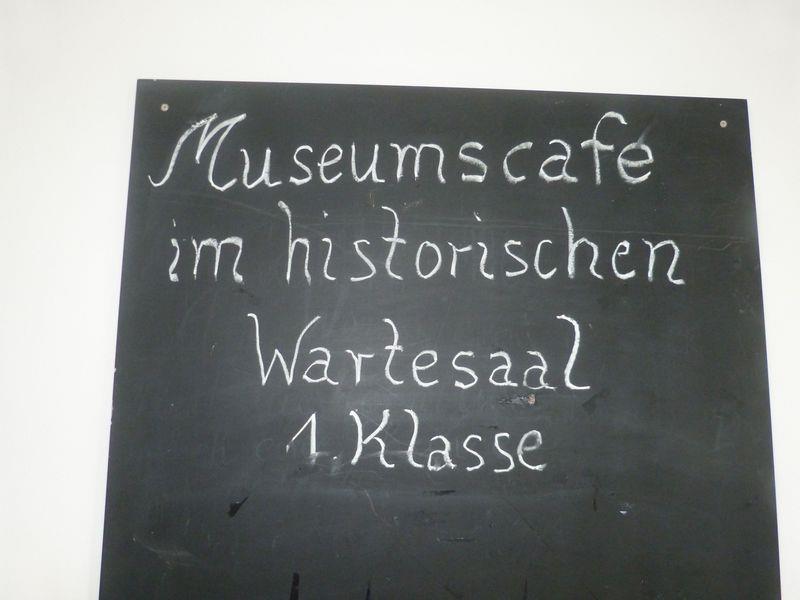 Museumscafe
im historischen
Wartesaal
1. Klasse